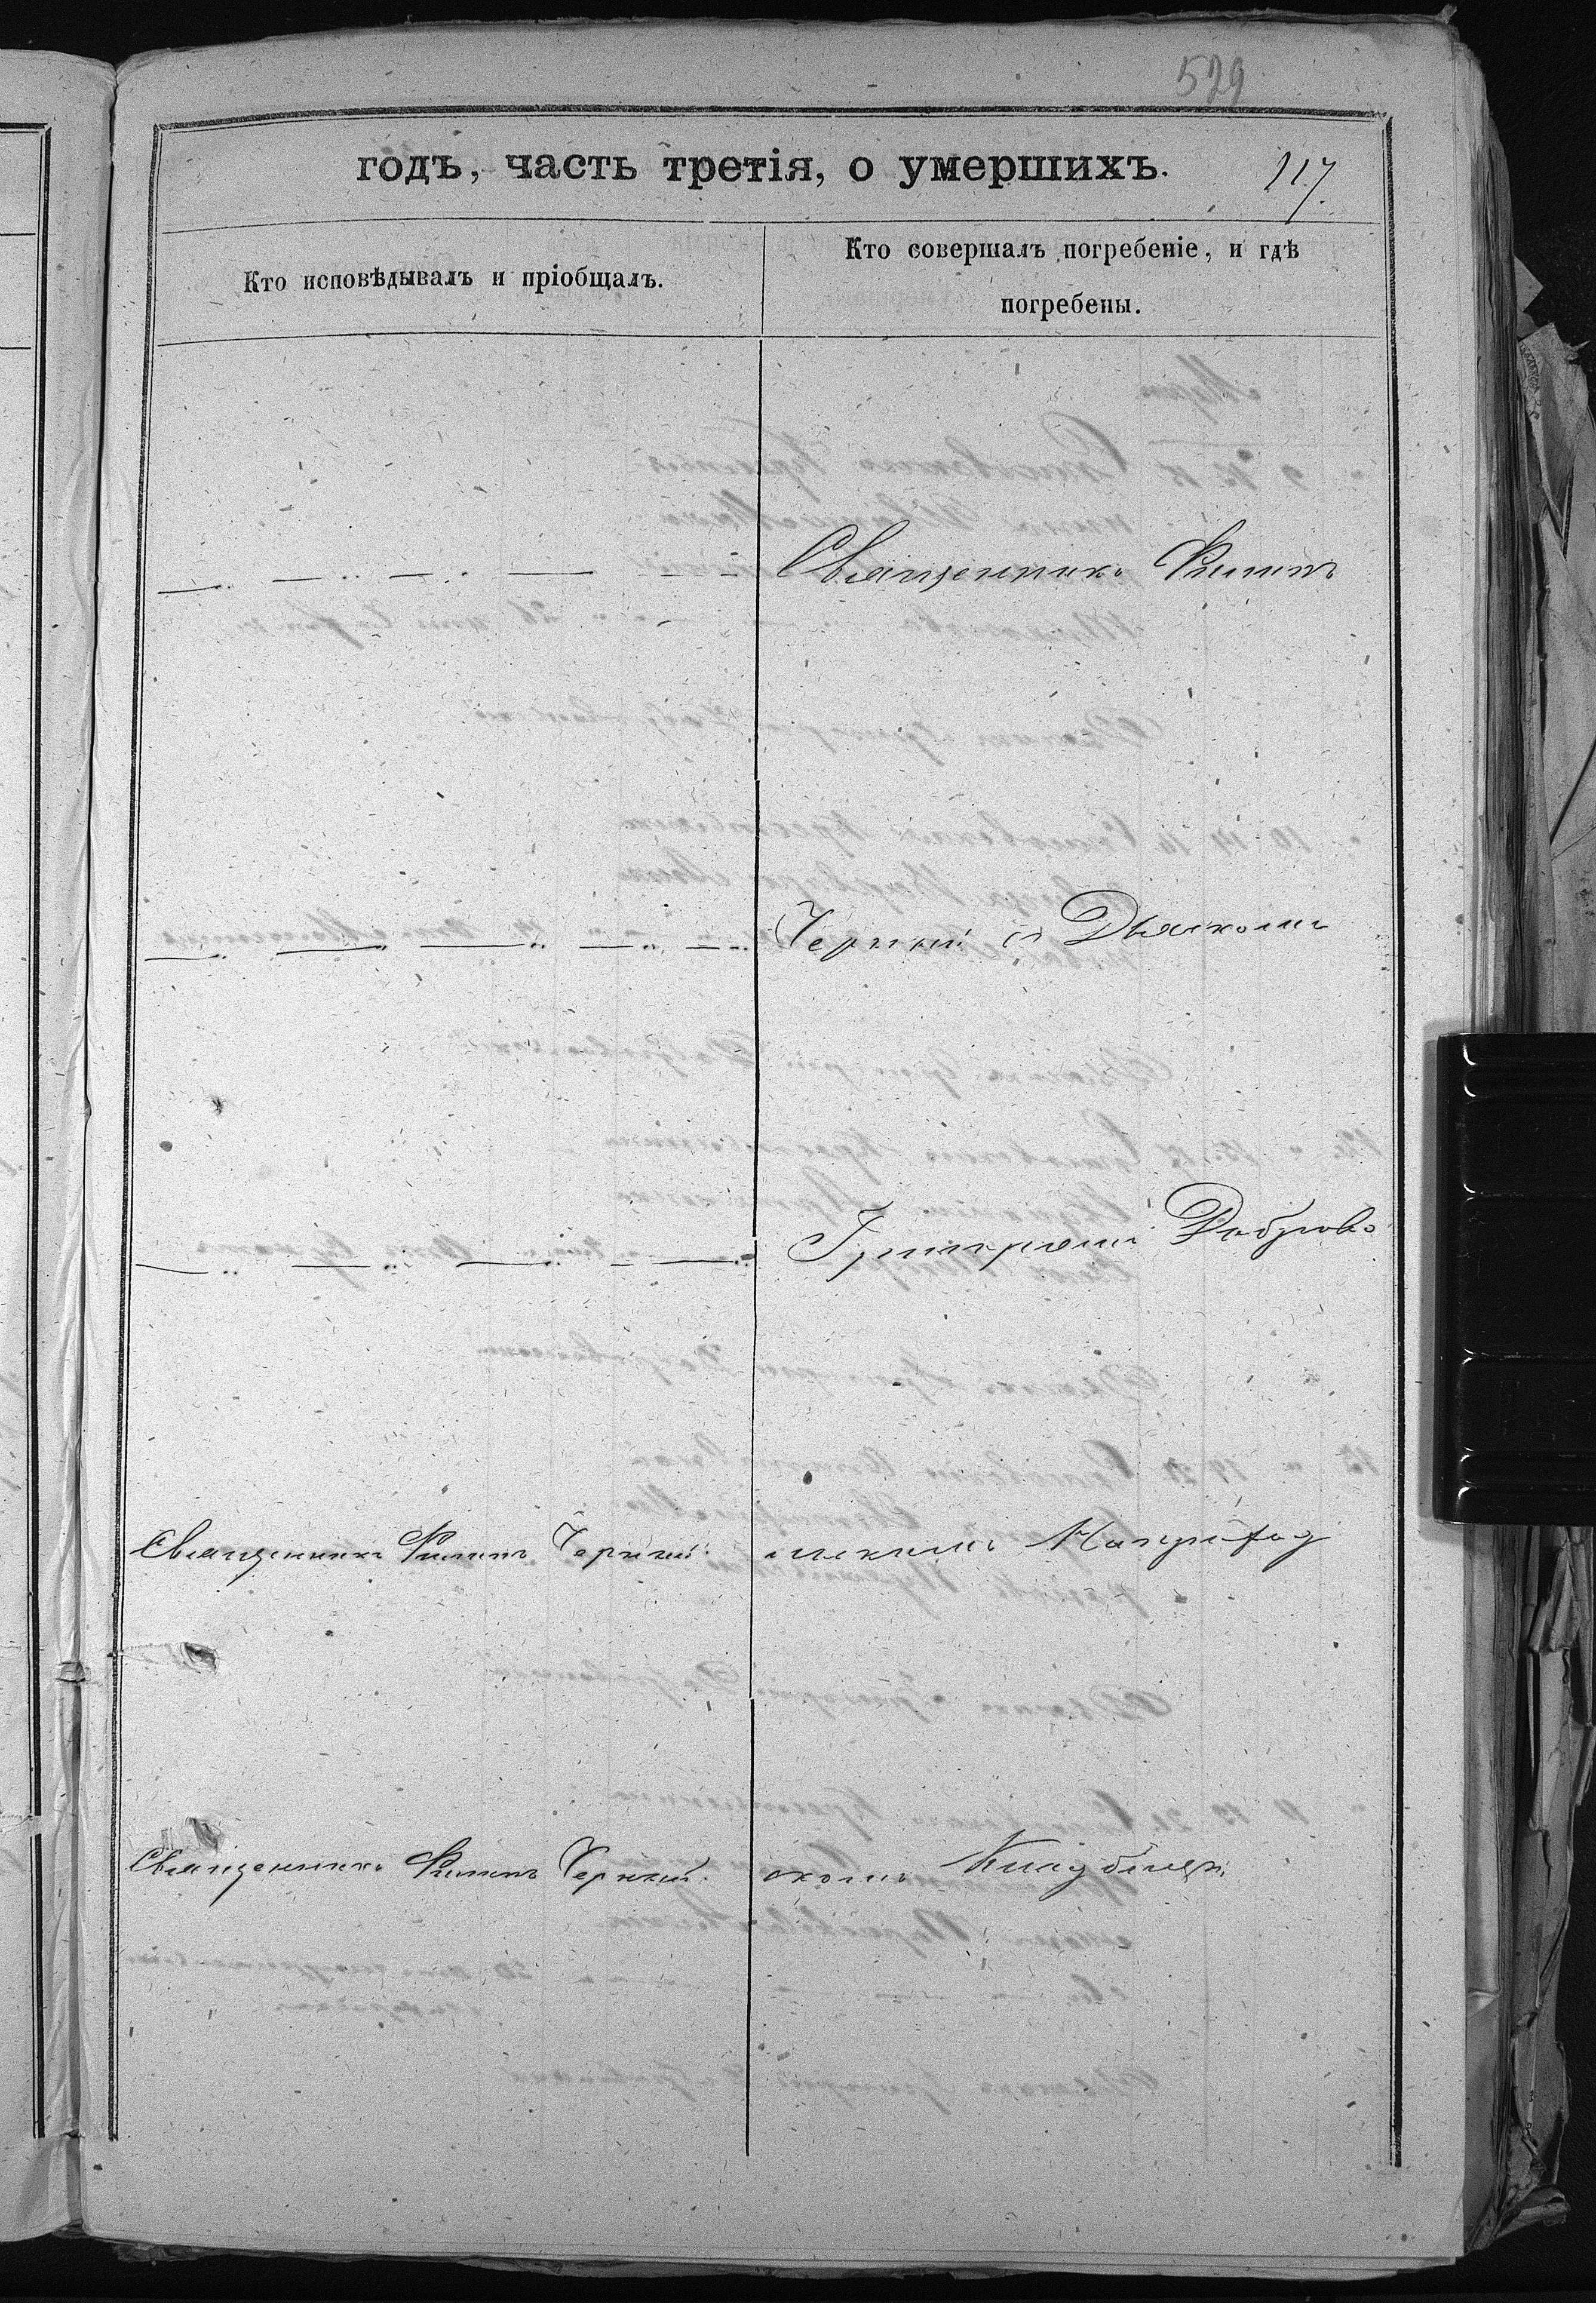 529
годъ, часть третія, о умершихъ.
117.
Кто исповѣдывалъ и пріобщалъ.
Кто совершалъ погребеніе, и гдѣ
погребены.
Священникъ Филипъ
Черний съ Дьякомъ
Григоріемъ Добров
Священникъ Филипъ Черний.
Священникъ Филипъ Черний.
скомъ Кладбищѣ